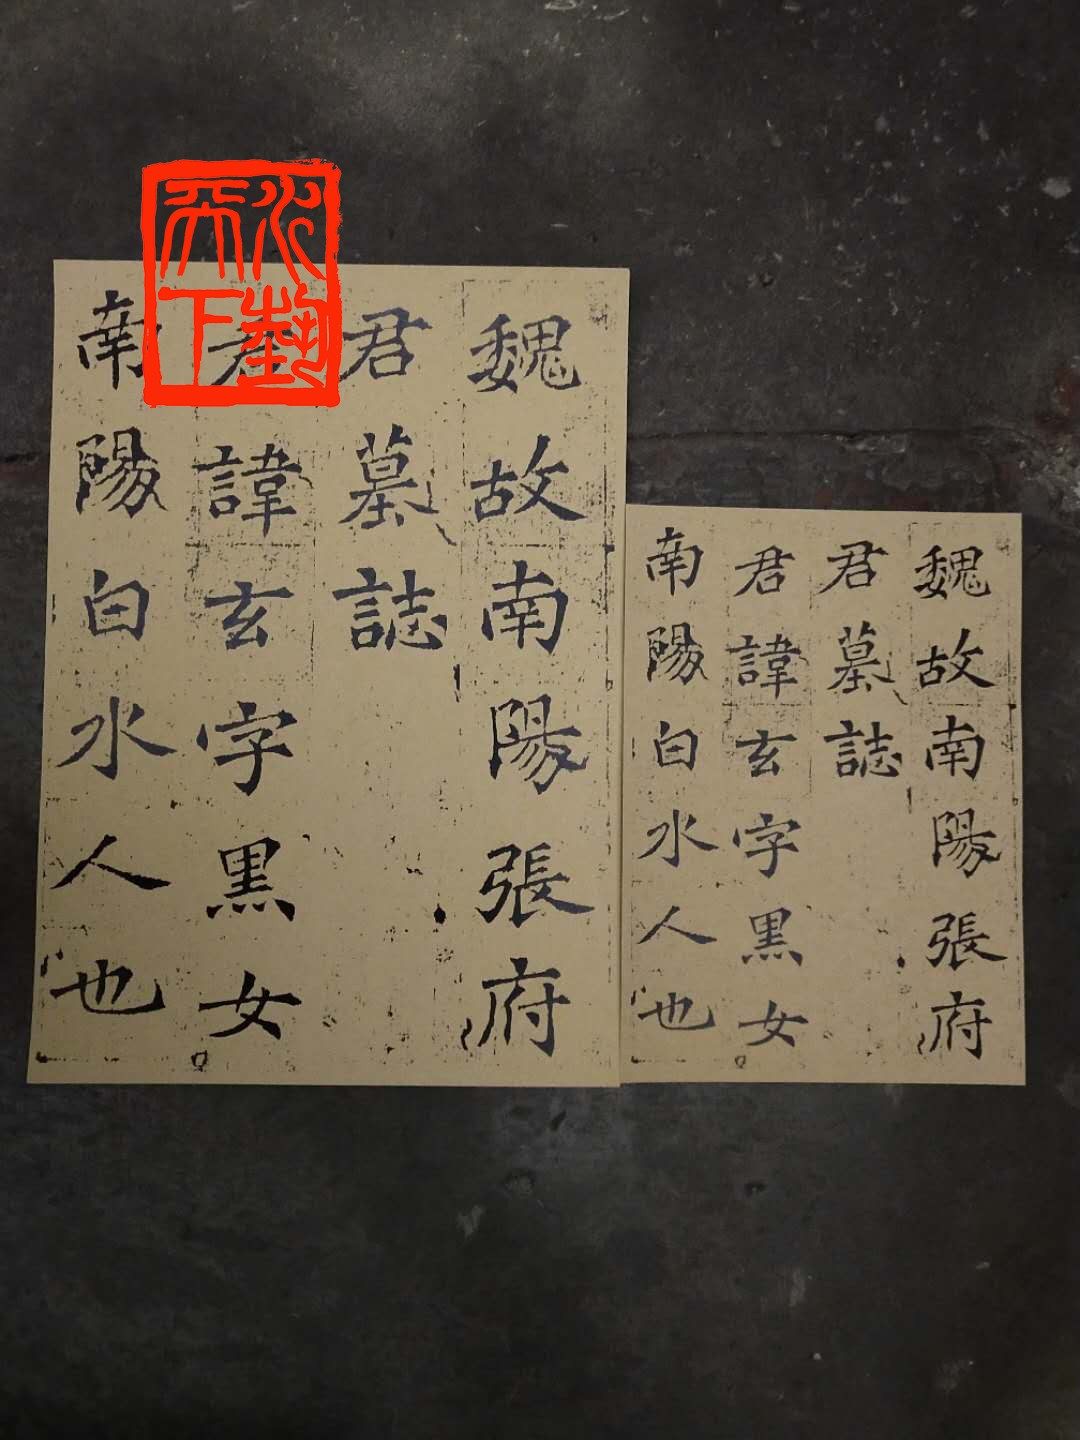 魏故南陽張府
君墓誌
君諱玄字黑女
南陽白水人也
魏故南陽張府
君墓誌
君諱玄字黑女
南陽白水人也
天下